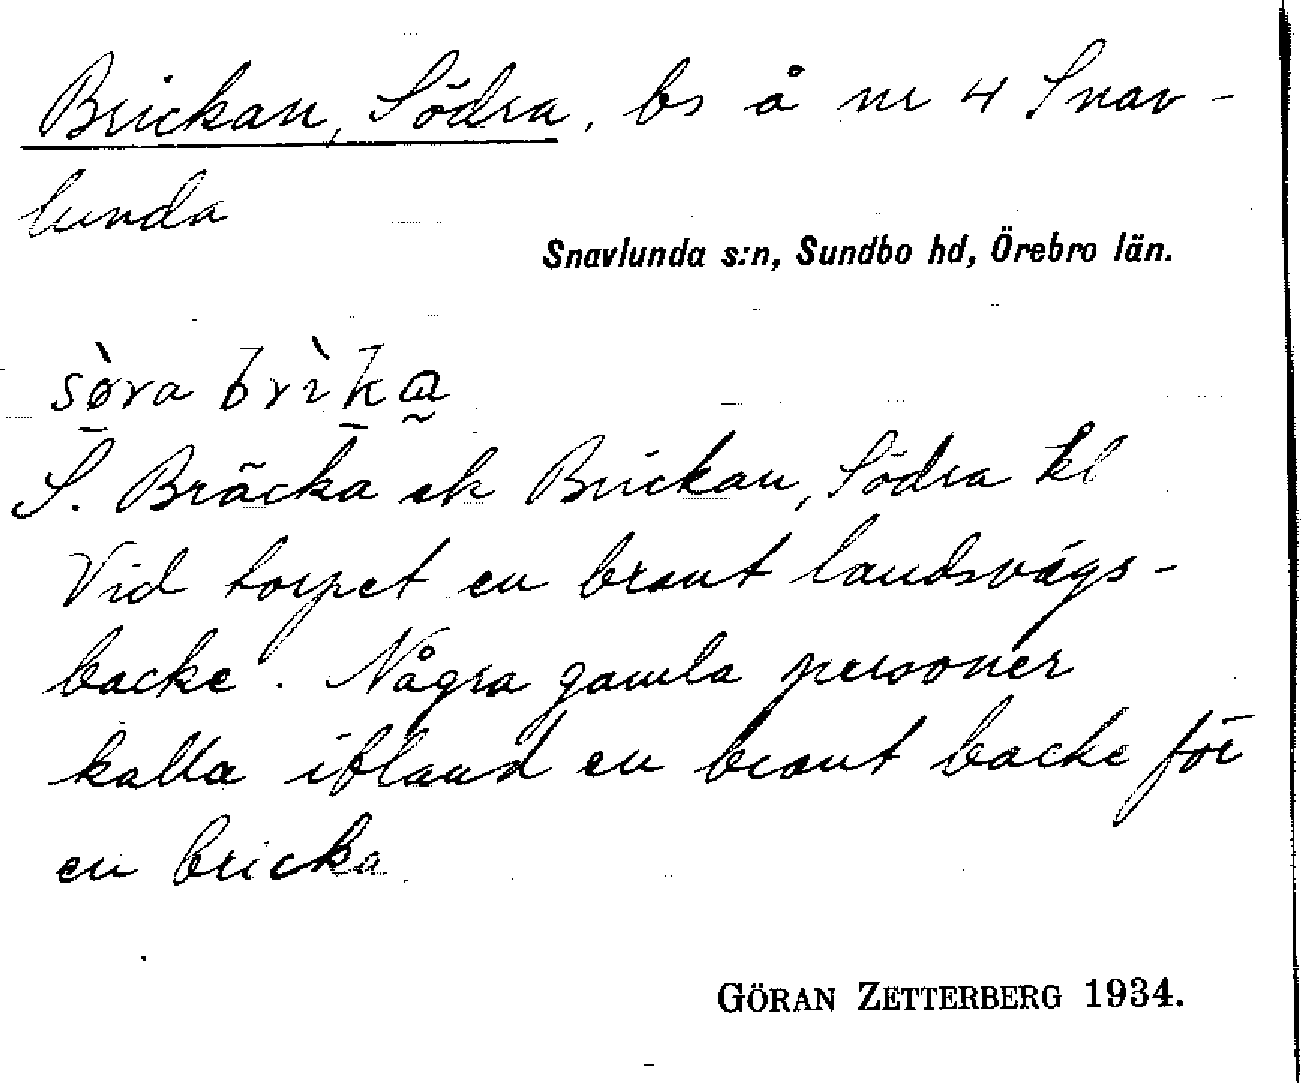 Brickan, Södra, bs å nr 4 Snav-
lunda
Snavlunda s:n, Sundbo hd, Örebro län.
sø̀ra brìka
S. Bräcka ek Brickan, Södra kl
Vid torpet en brant landsvägs-
backe. Några gamla personer
kalla ibland en brant backe för
en bricka.
GÖRAN ZETTERBERG 1934.